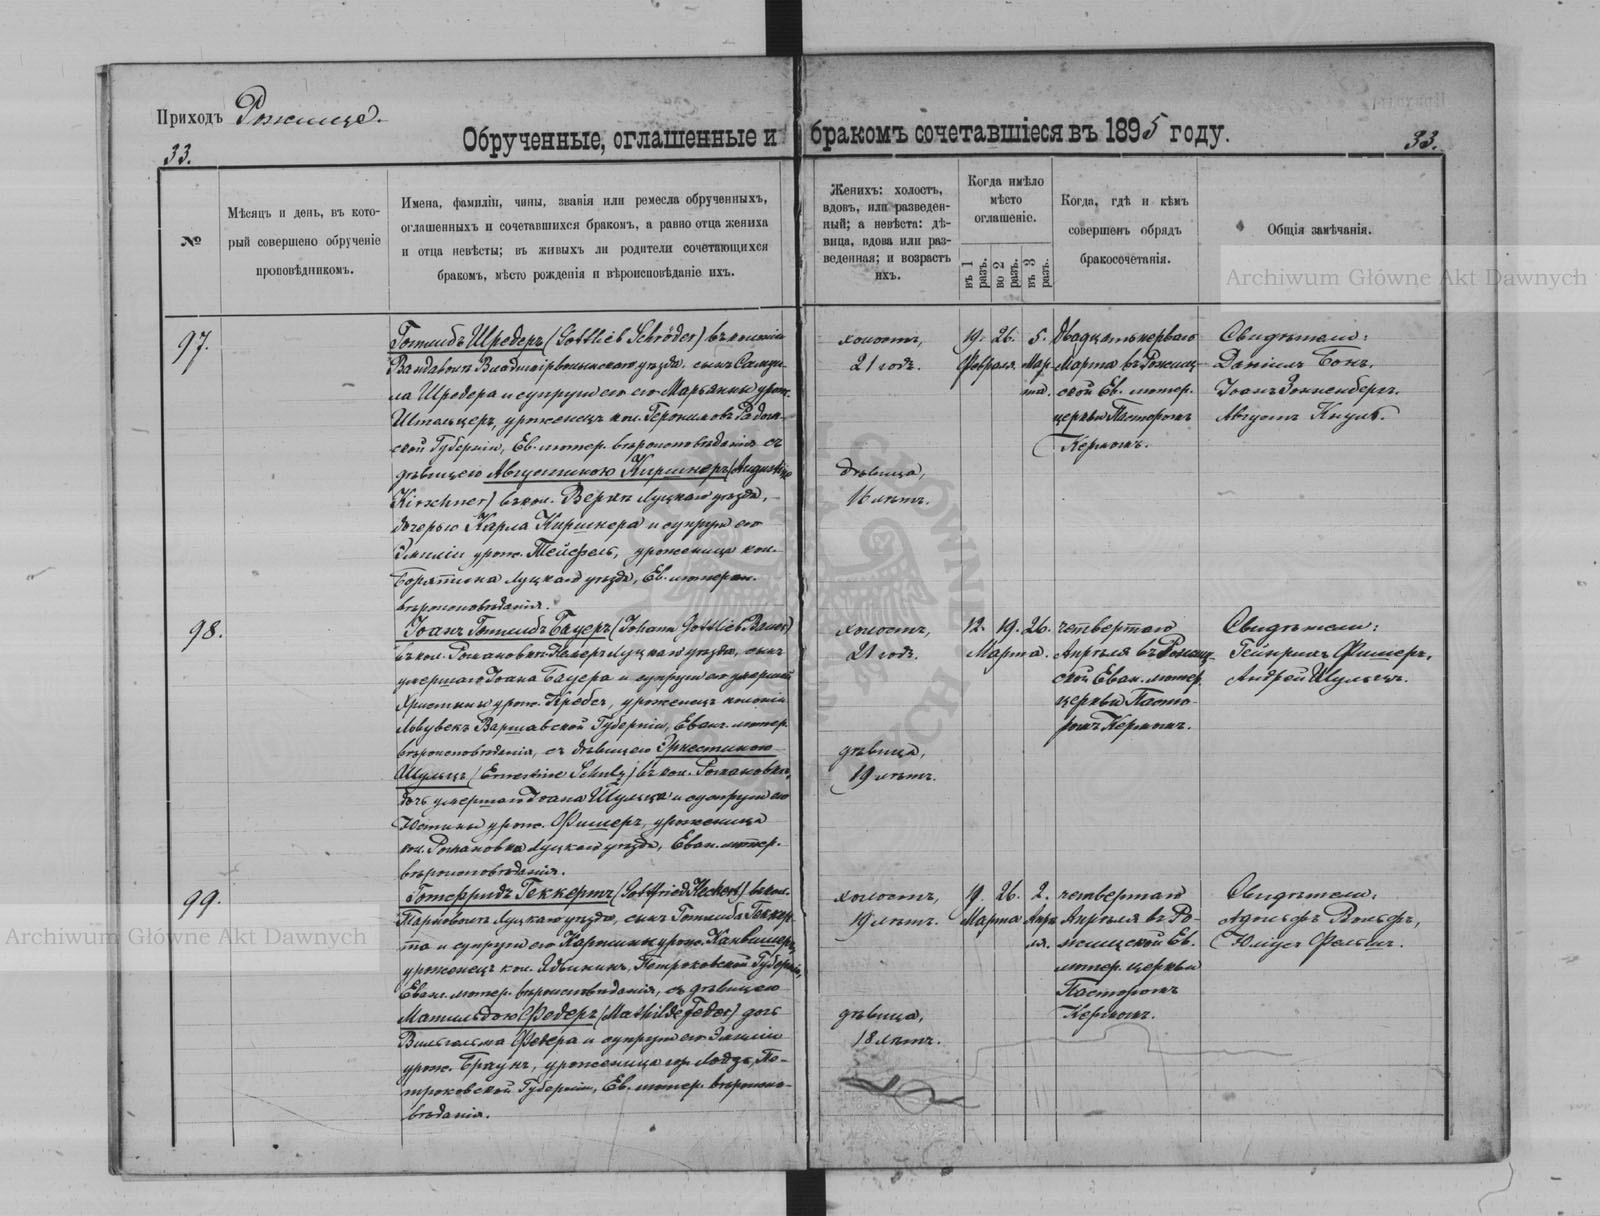 Приходъ Рожище.
Обрученные, оглашенные и бракомъ сочетавшіеся въ 1895 году.
33.
33.
№
Мѣсяцъ и день, въ кото-
рый совершено обрученіе
проповѣдникомъ.
Имена, фамиліи, чины, званія или ремесла обрученныхъ,
оглашенныхъ и сочетавшихся бракомъ, а равно отца жениха
и отца невѣсты; въ живыхъ ли родители сочетающихся
бракомъ, мѣсто рожденія и вѣроисповѣданіе ихъ.
Женихъ: холостъ,
вдовъ, или разведен-
ный; а невѣста: дѣ-
вица, вдова или раз-
веденная; и возрастъ
ихъ.
Когда имѣло
мѣсто
оглашеніе.
въ 1 разъ.
во 2 разъ.
въ 3 разъ.
Когда, гдѣ и кѣмъ
совершенъ обрядъ
бракосочетанія.
Общія замѣчанія.
Archiwum Główne Akt Dawnych
97.
Готлибъ Шредеръ (Gottlieb Schröder) въ колоніи
Вандавкѣ Владимірволынскаго уѣзда, сынъ Самуи-
ла Шредера и супруги его Марьянны урож.
Штельцеръ, уроженецъ кол. Радом-
ской Губерніи, Ев. лютер. вѣроисповѣданія съ
дѣвицею Августиною Киршнеръ (Augustine
Kirschner) въ кол. Вербы Луцкаго уѣзда, -
дочерью Карла Киршнера и супруги его
Эмиліи урож. Тейфель, уроженица кол.
Борятина Луцкаго уѣзда, Ев. лютеран.
вѣроисповѣданія.
холостъ,
21 годъ.
дѣвица,
16 лѣтъ.
19. 26. 5.
Февраля. Мар-
та.
Двадцать перваго
Марта въ Рожищ-
ской Ев. лютер.
церкви Пасторомъ
Кермомъ.
Свидѣтели:
Даніилъ Бонъ.
Іоанъ Зонненбергъ.
Августъ Кнулъ.
98.
Іоанъ Готлибъ Бауеръ (Johann Gottlieb Bauer)
въ кол. Романовкѣ Луцкаго уѣзда, сынъ
умершаго Іоана Бауера и супруги его умершей
Христины урож. Кребсъ, уроженецъ колоніи
Варшавской Губерніи, Еван. лютер.
вѣроисповѣданія, съ дѣвицею Эрнестиною
Шульцъ (Ernestine Schulz) въ кол. Романовкѣ,
дочь умершаго Іоана Шульца и супруги его
Юстины урож. Фишеръ, уроженица
кол. Романовка Луцкаго уѣзда, Еван. лютер.
вѣроисповѣданія.
холостъ,
21 годъ.
дѣвица,
19 лѣтъ.
12. 19. 26.
Марта.
четвертаго
Апрѣля въ Рожищ-
ской Еван. лютер.
церкви Пасто-
ромъ Кермомъ.
Свидѣтели:
Гейнрихъ Фишеръ,
Андрей Шульцъ.
99.
Готфридъ Геккертъ (Gottfried Heckert) въ кол.
Тарновкѣ Луцкаго уѣзда, сынъ Готлиба Геккер-
та и супруги его Каролины урож.
уроженецъ кол. Петроковской Губерніи,
Еван. лютер. вѣроисповѣданія, съ дѣвицею
Матильдою Федеръ (Mathilde Feder) дочь
Вильгельма Федера и супруги его Эмиліи
урож. Браунъ, уроженица гор. Лодзь, Пе-
троковской Губерніи, Ев. лютер. вѣроиспо-
вѣданія.
холостъ,
19 лѣтъ.
дѣвица,
18 лѣтъ.
19. 26. 2.
Марта Апрѣ-
ля.
четвертаго
Апрѣля въ Ро-
жищской Ев.
лютер. церкви
Пасторомъ
Кермомъ.
Свидѣтели:
Адольфъ Вольфъ,
Юліусъ Фельшъ.
Archiwum Główne Akt Dawnych